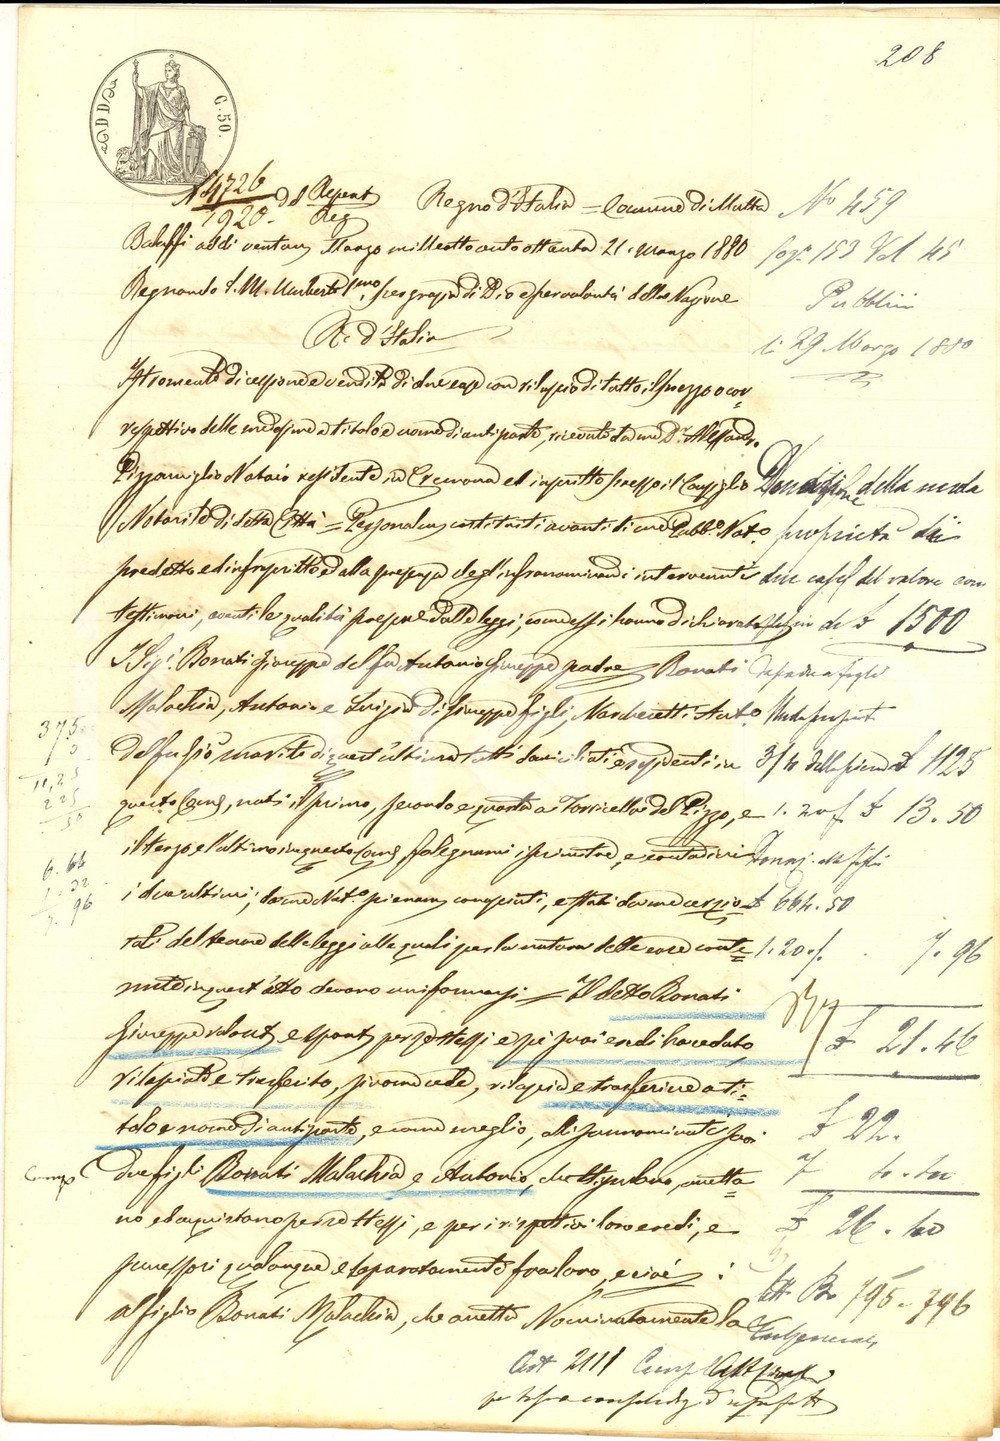 208
C. 50.
N. 4726 del Repert
1920 Reg
Regno d'Italia = Comune di Motta
Baluffi addi ventun Marzo milleottocentoottanta 21. Marzo 1880
Regnando S. M. Umberto Imo, per grazia di Dio e per volontà della Nazione
Re d'Italia
Istromento di cessione e vendita di due case con rilascio di tutto il prezzo o cor-
respettivo delle medesime a titolo e nome di antiparte, ricevuto da me Dr. Alessandro
Pizzamiglio Notaio residente in Cremona ed inscritto presso il Consiglio
Notarile di detta Città = Personalm. costituiti avanti di me Pubb.o Not.o
predetto ed infrascritto ed alla presenza degli infranominandi intervenuti
testimoni, aventi le qualità prescritte dalle leggi, com'essi hanno dichiarato
I Sig.i Bonati Giuseppe del fu Antonio Giuseppe padre Bonati
Malachia, Antonio e Luigia di Giuseppe figli, Ant.o
del fu marito di quest'ultima tutti domiciliati e residenti in
questo Com.e, nati il primo, secondo e quarta a Torricella del Pizzo, e
il terzo e l'ultimo in questo Com.e, falegnami i primi tre, e contadini
i due ultimi; da me Not.o pienam. conosciuti, e stati da me cerzio-
rati del tenore delle leggi alle quali per la natura delle cose conte=
nute in quest'atto devono uniformarsi = Il detto Bonati
Giuseppe volont. e spont. per se stesso e pei suoi eredi ha ceduto
rilasciato e trasferito, siccome cede, rilascia e trasferisce a ti-
tolo e nome di antiparte, e come meglio, alli summominati suoi
due figli Bonati Malachia e Antonio, che stipulano, accetta-
no ed acquistano per se stessi, e per i rispettivi loro eredi, e
successori qualunque e separatamente fra loro, e cioè :
al figlio Bonati Malachia, che accetta Nominatamente la
No 459
fog. 153 Vol 45
Pubblici
li 29 Marzo 1880
Donazione della nuda
proprietà di
due case del valore com
di £ 1500
da padre a figli
Nuda propriet
3/4 della piena £ 1125
1. 20 % £ 13. 50
£ 664. 50
1. 20 % 7. 96
£ 21. 46
£ 22.
4. 40
£ 26. 40
795. 796
375
11,25
225
6. 64
1. 32
7. 96
Comp
Art 2111